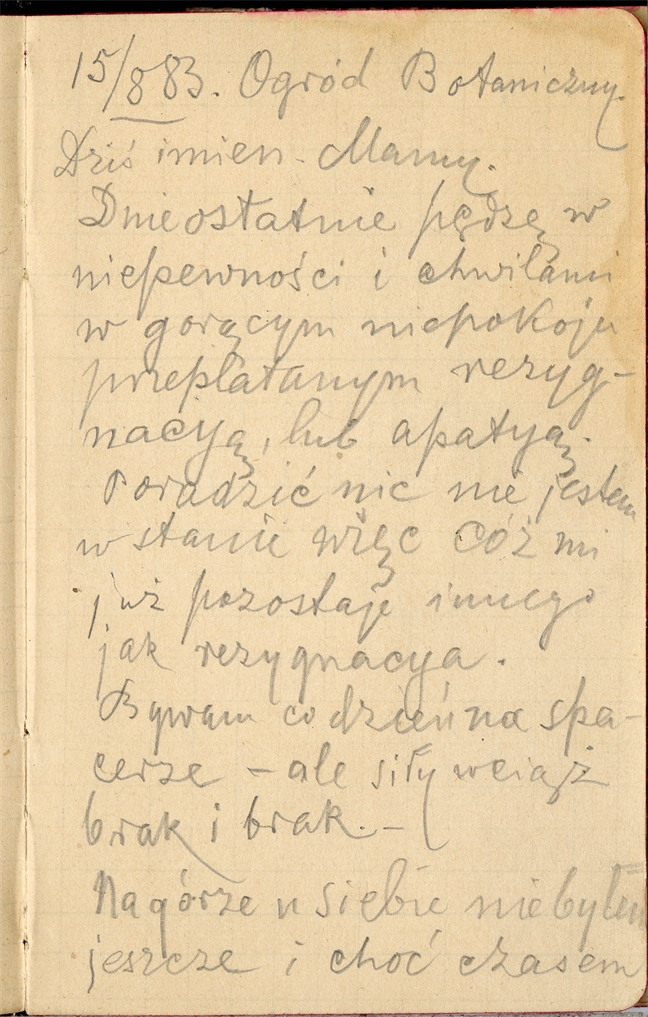 15/8 83. Ogród Botaniczny.
Dziś imien. Mamy.
Dnie ostatnie pędzę w
niepewności i chwilami
w gorącym niepokoju
przeplatanym rezyg-
nacyą, lub apatyą.
Poradzić nic nie jestem
w stanie więc cóż mi
już pozostaje innego
jak rezygnacya.
Bywam co dzień na spa-
cerze – ale siły wciąż
brak i brak. –
Na górze u siebie nie byłem
jeszcze i choć czasem